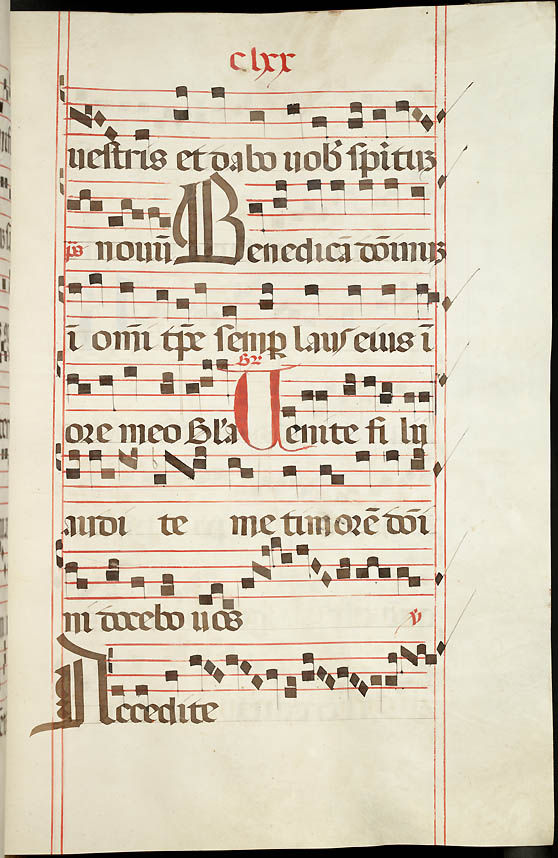 clxx
uestris et dabo uob̄ spiritūȝ
p̄s nouū Benedicā dōminūȝ
ī om̄i tp̄e semꝑ laus eius ī
ore meo Gl'a Gr̄ Uenite fi lij
audi te me timorē dōi
ni docebo uos
v̄
Accedite